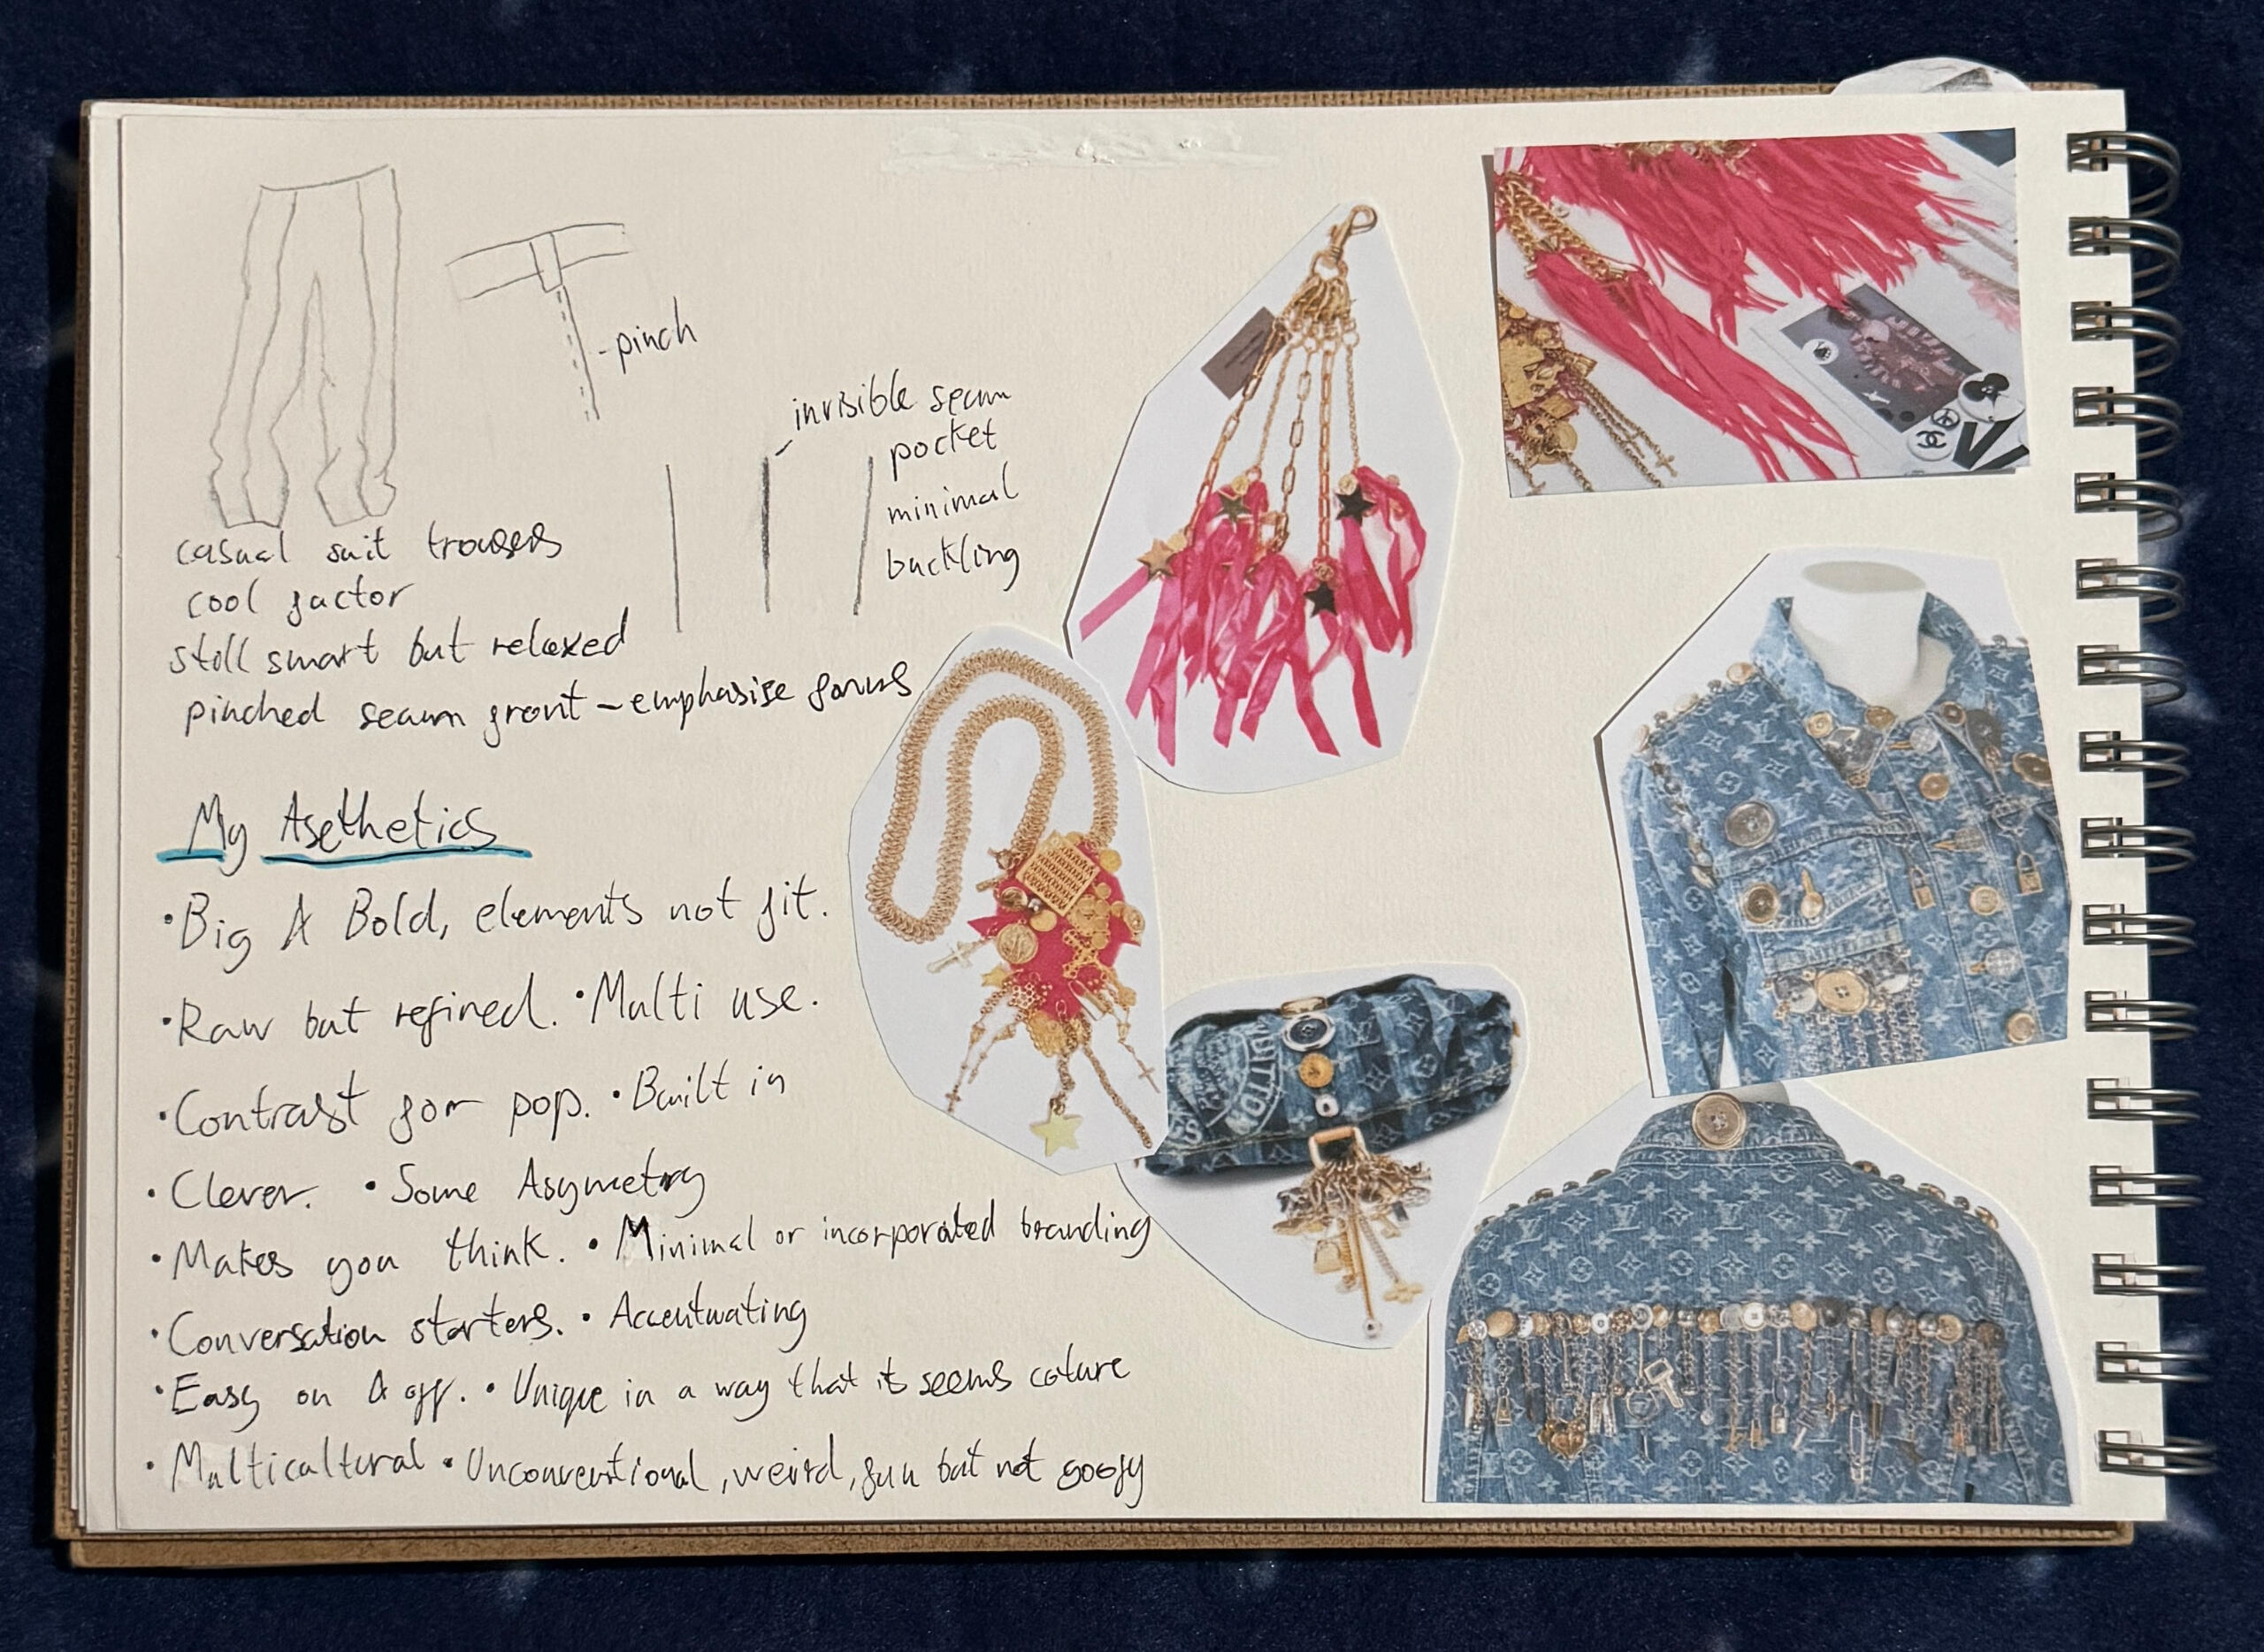 pinch
invisible seam
pocket
minimal
buckling
casual suit trousers
cool factor
still smart but relaxed
pinched seam front - emphasise forms
My Asethetics
• Big & Bold, elements not fit.
• Raw but refined. • Multi use.
• Contrast for pop. • Built in
• Clever. • Some Asymetry
• Makes you think. • Minimal or incorporated branding
• Conversation starters. • Accentuating
• Easy on & off. • Unique in a way that it seems coture
• Multicultural • Unconventional, weird, fun but not goofy